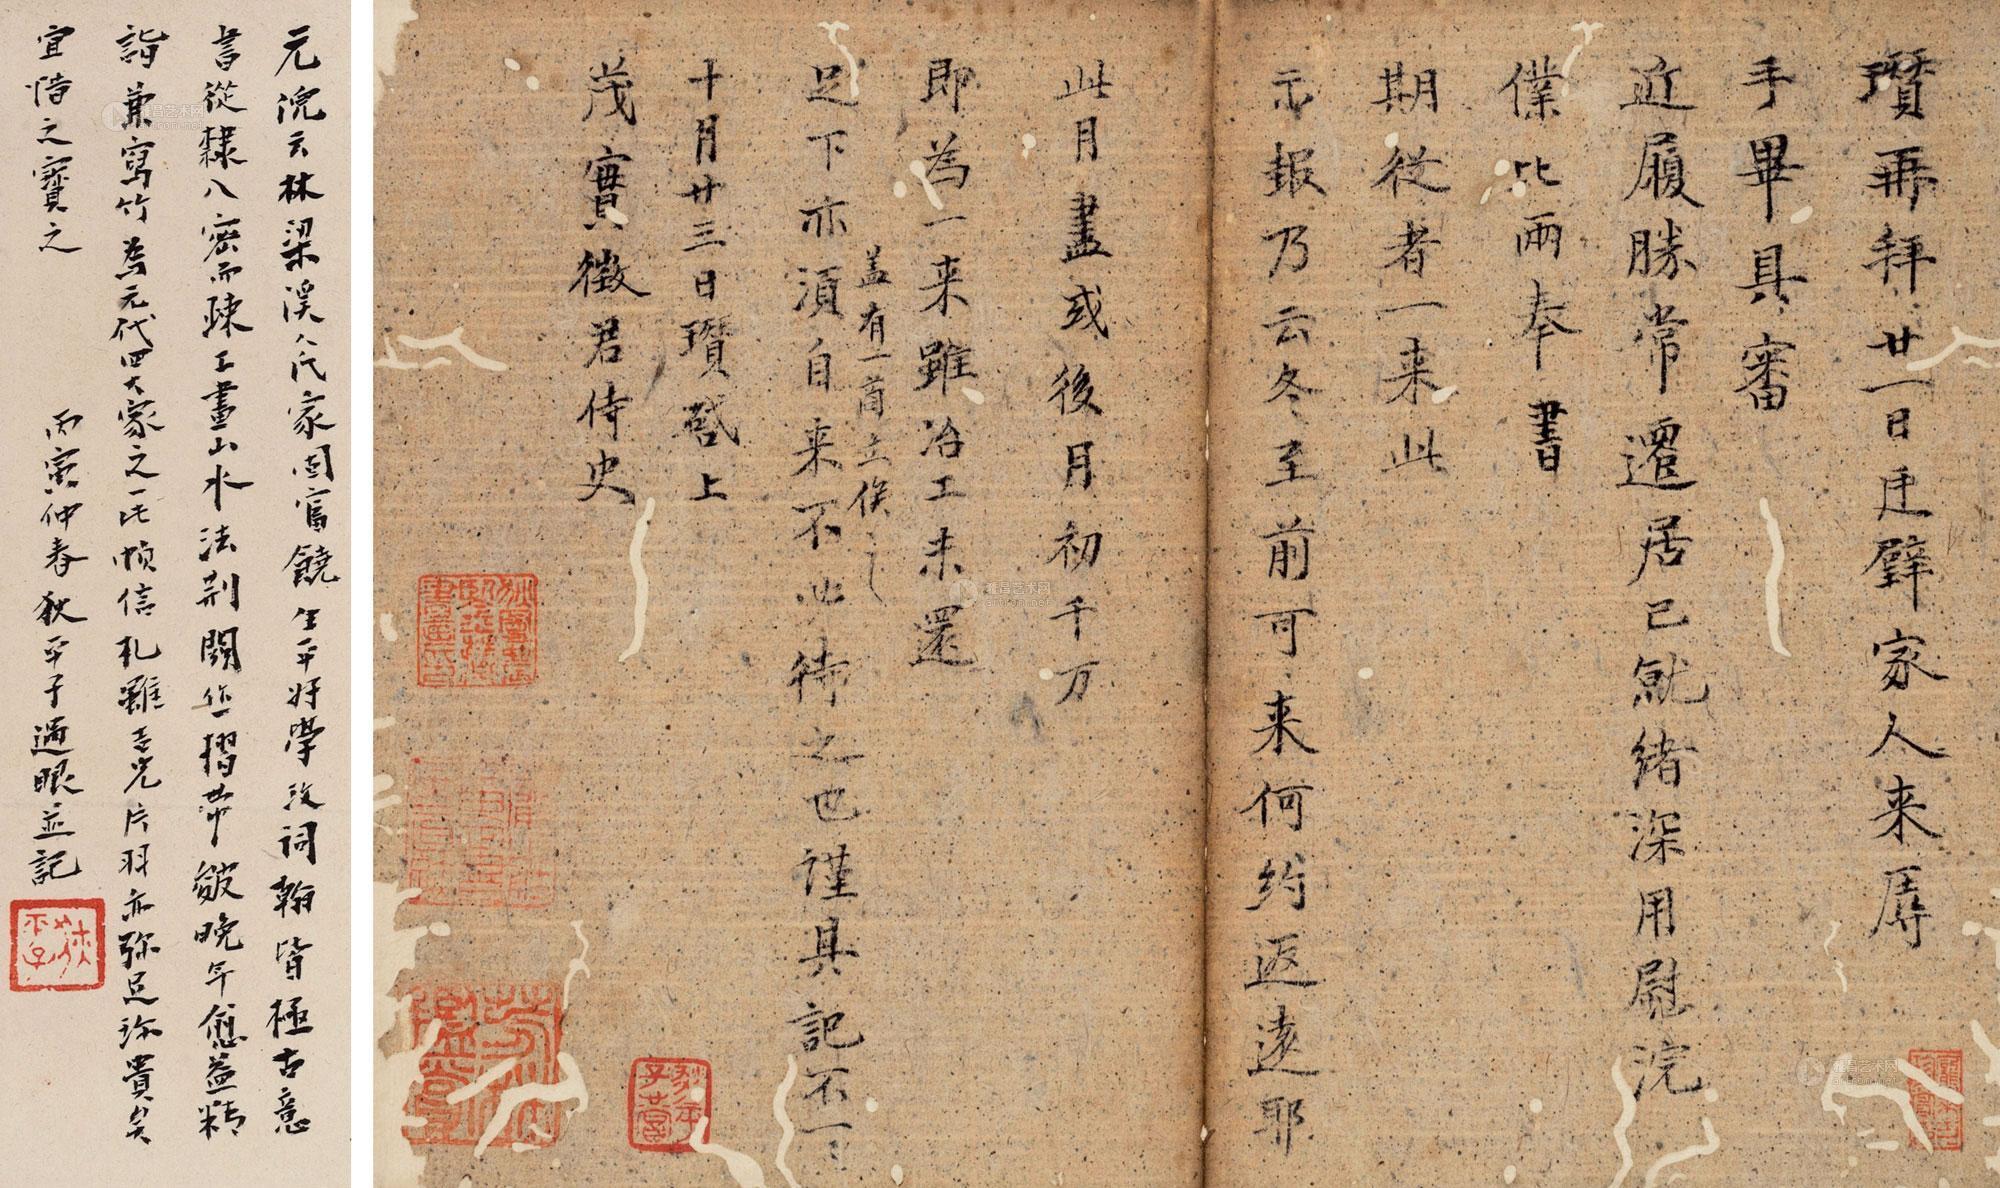 瓚再拜廿一日迋璧家人来辱
手畢具審
近履勝常遷居已就緒深用慰浣
僕比兩奉書
期從者一来此
示報乃云冬至前可来何約返遠耶
此月盡或後月初千万
即為一来雖冶工未還
盖有一首立俟之
足下亦須自来不必待之也謹具記不一一
十月廿三日瓚啓上
茂實徵君侍史
元倪云林梁溪人氏家固富饒生平好學攻詞翰皆極古意
書從隸入密而疎工畫山水法荊關作摺帶皴晚年愈益精
詣兼寫竹為元代四大家之一此幀信札雖吉光片羽亦弥足珍貴矣
宜待之寶之
丙寅仲春狄平子過眼並記
狄平子